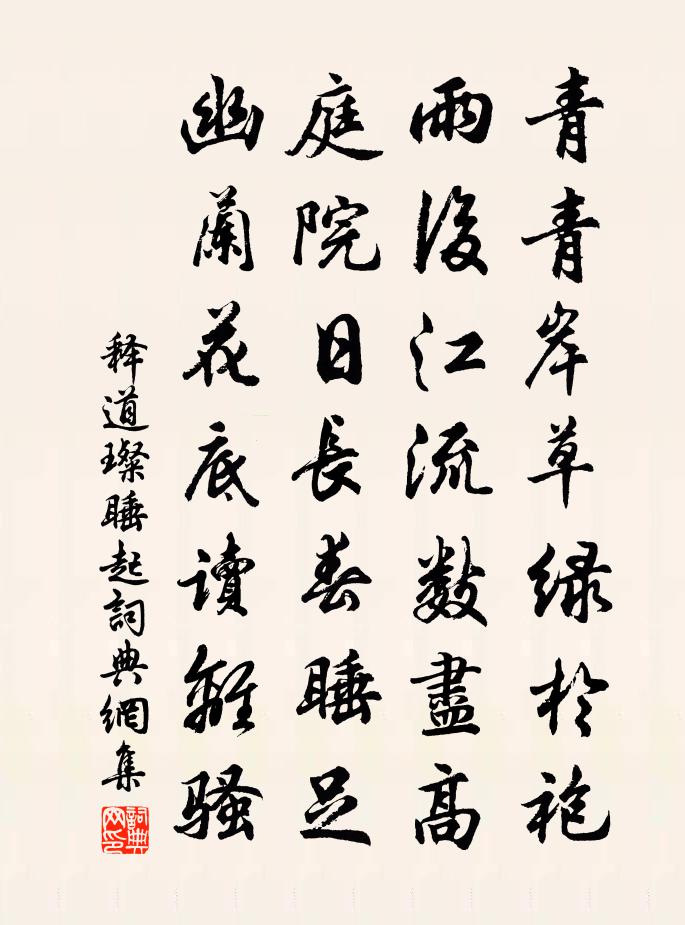 青青岸草緑於袍
雨後江流數盡高
庭院日長春睡足
幽蘭花底讀離騷
释道璨睡起詞典網集
詞典
网印